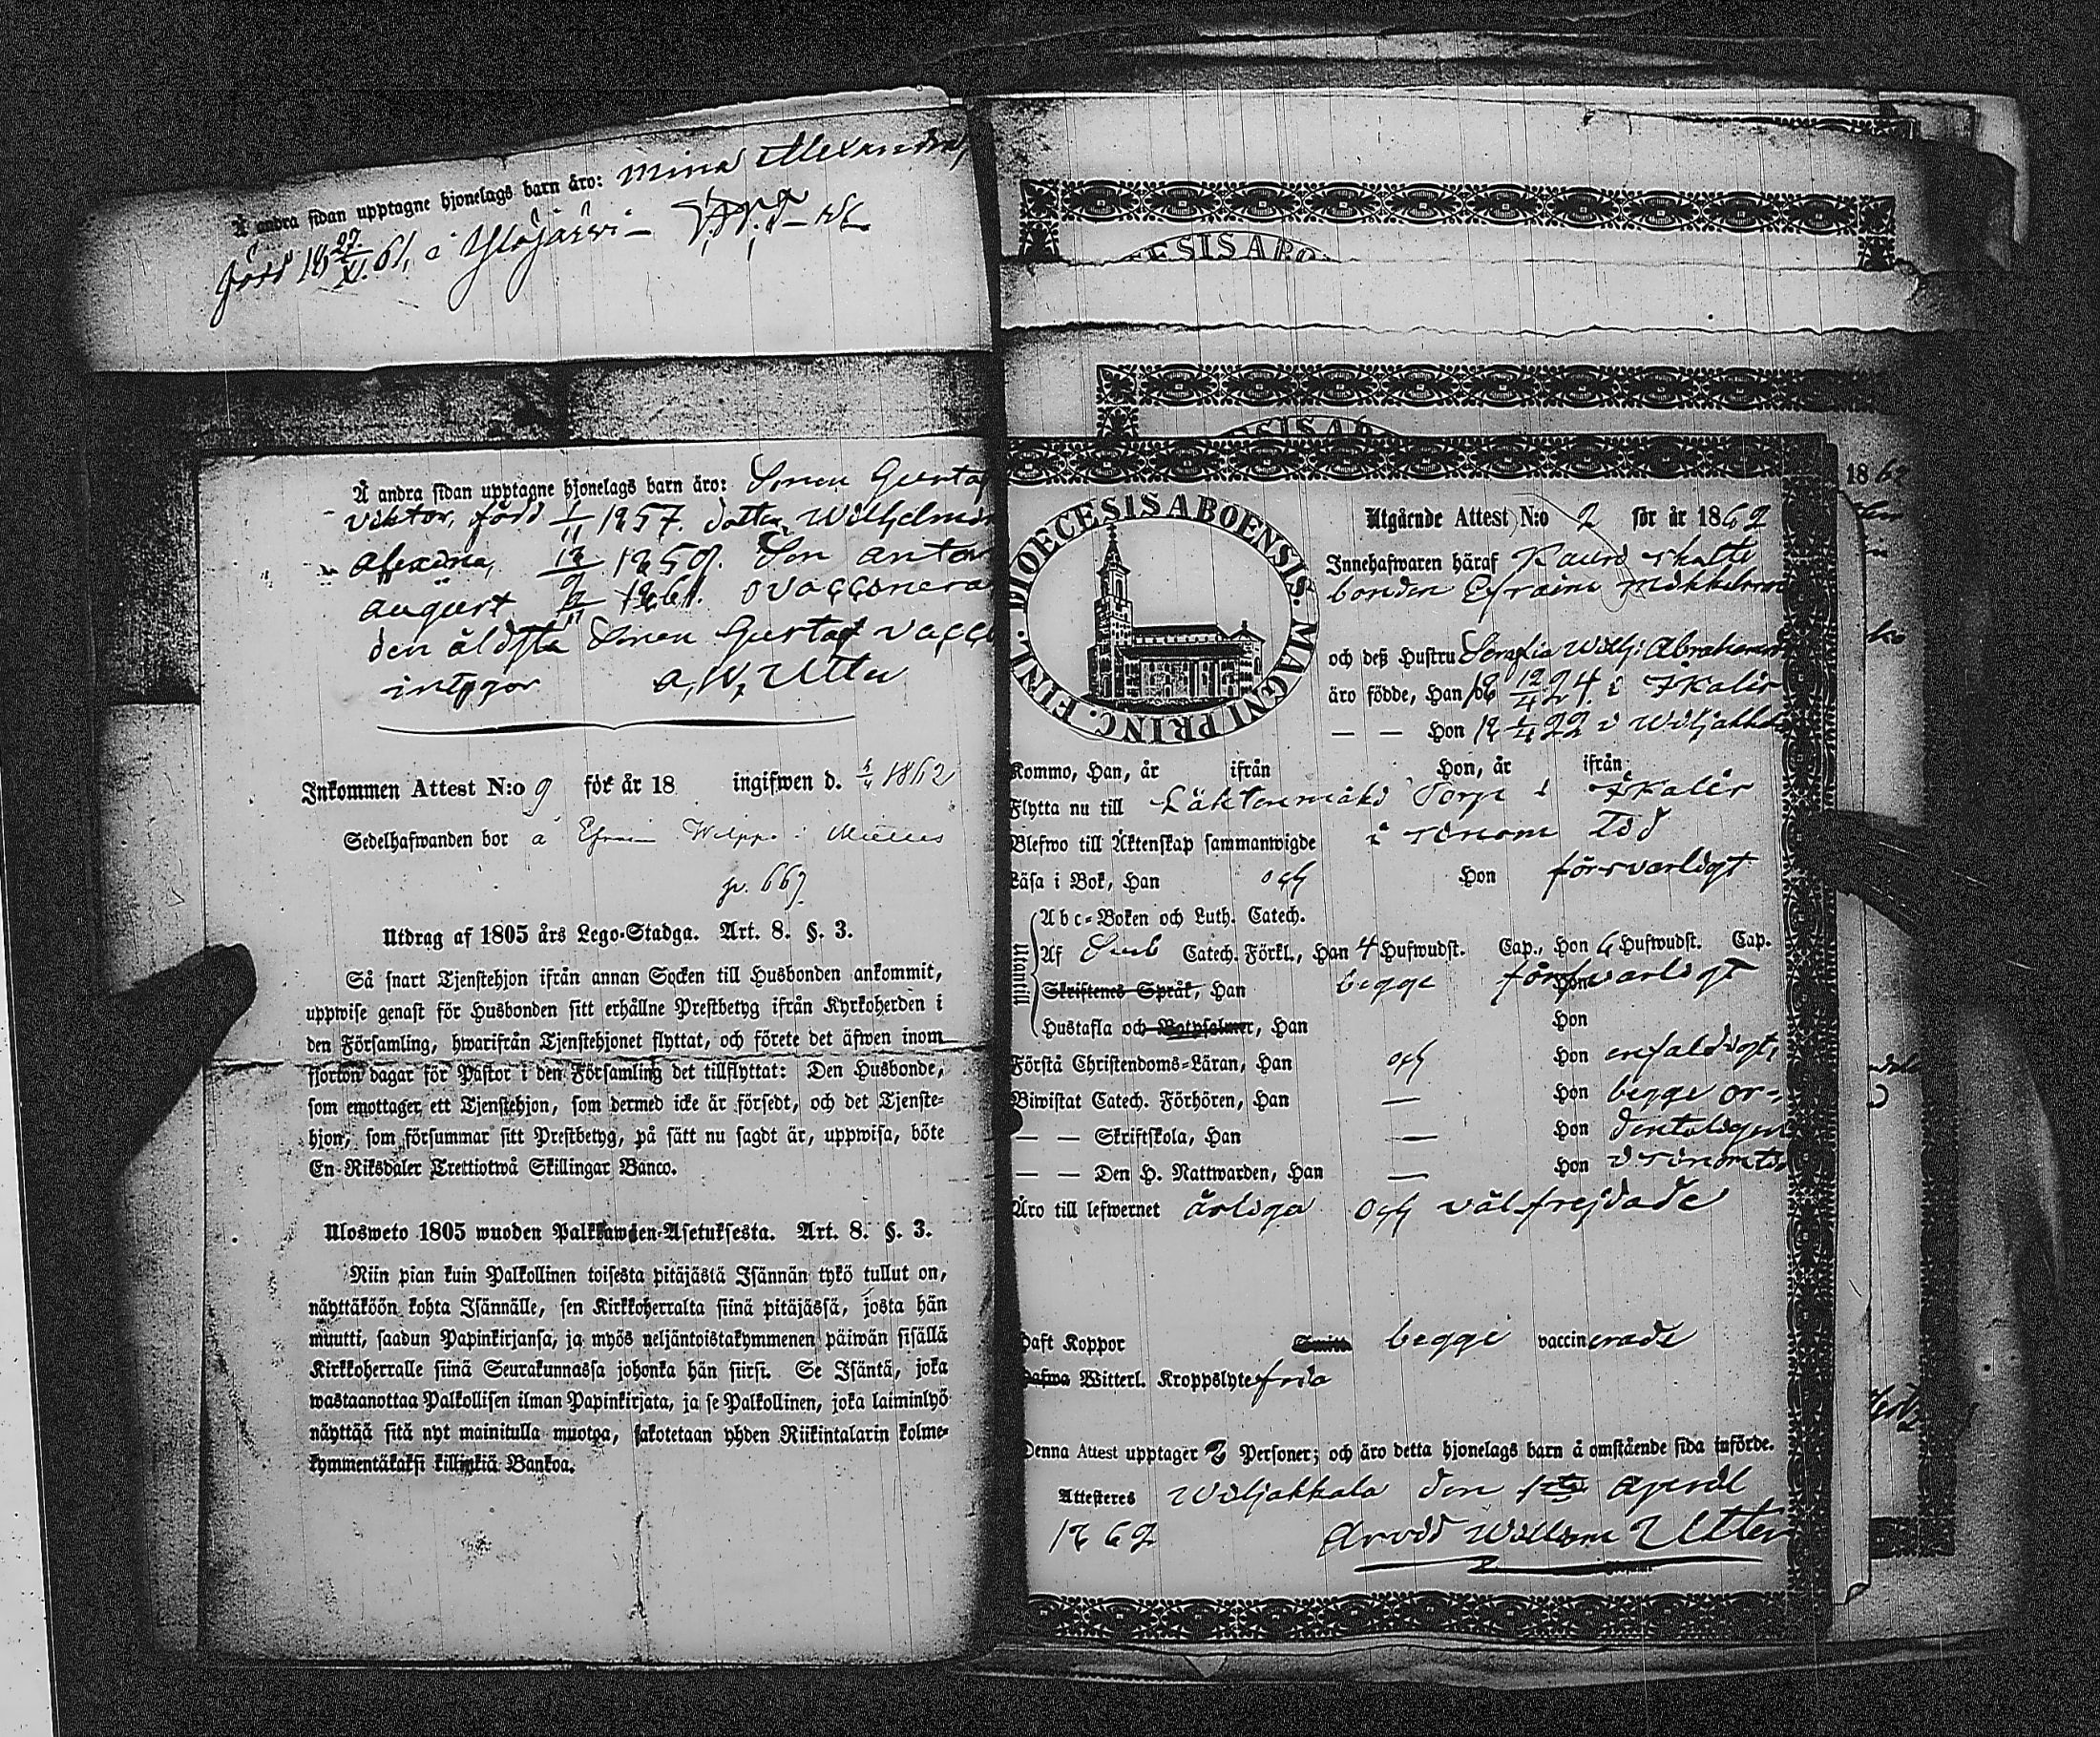 Å andra sidan upptagne hjonelags barn äro: Mina Alexandra,
född 18 27/XI. 61, i Ylöjärvi –
Å andra sidan upptagne hjonelags barn äro: Sonen Gustaf
Viktor, född 1/11 1857. dotter Wilhelmin
Alexdra, 1859. Son anton
august 1861. ovaccinera
den äldsta Sonen Gustaf vacc
intygar A, W, Utter
Inkommen Attest N:o 9 för år 18 ingifwen d. 1862
Sedelhafwanden bor å Efraim
p. 667
Utdrag af 1805 års Lego-Stadga. Art. 8. §. 3.
Så snart Tjenstehjon ifrån annan Socken till Husbonden ankommit,
uppwise genast för Husbonden sitt erhållne Prestbetyg ifrån Kyrkoherden i
den Församling, hwarifrån Tjenstehjonet flyttat, och förete det äfwen inom
fjorton dagar för Pastor i den Församling det tillflyttat: Den Husbonde,
som emottager ett Tjenstehjon, som dermed icke är försedt, och det Tjenste-
hjon, som försummar sitt Prestbetyg, på sätt nu sagdt är, uppwisa, böte
En Riksdaler Trettiotwå Skillingar Banco.
Ulosweto 1805 wuoden Palkkawäen-Asetuksesta. Art. 8. §. 3.
Niin pian kuin Palkollinen toisesta pitäjästä Isännän tykö tullut on,
näyttäköön kohta Isännälle, sen Kirkkoherralta siinä pitäjässä, josta hän
muutti, saadun Papinkirjansa, ja myös neljäntoistakymmenen päiwän sisällä
Kirkkoherralle siinä Seurakunnassa johonka hän siirsi. Se Isäntä, joka
wastaanottaa Palkollisen ilman Papinkirjata, ja se Palkollinen, joka laiminlyö
näyttää sitä nyt mainitulla muotoa, sakotetaan yhden Riikintalarin kolme-
kymmentäkaksi killinkiä Bankoa.
ESIS ABO
SIS AB
1862
DIOECESIS ABOENSIS. MAGNI PRINC. FINL.
Utgående Attest N:o 2 för år 1862
Innehafwaren häraf skatte
bonden Efraim Mikkelsson
och deß Hustru Serafia Wilh: Abrahamsd
äro födde, Han 18 12/4 24. i Ikalis
— — Hon 18 22 i Wiljakkala
Kommo, Han, år ifrån Hon, år ifrån
Flytta nu till Torp i Ikalis
Blefwo till Äktenskap sammanwigde i sinom tid
Läsa i Bok, Han och Hon försvarligt
Abc-Boken och Luth. Catech.
Utantill
Af Catech. Förkl., Han 4 Hufwudst. Cap., Hon 4 Hufwudst. Cap.
Skriftenes Språk, Han begge Hon försvarligt
Hustafla och Botpsalmer, Han Hon
Förstå Christendoms-Läran, Han och Hon enfaldigt,
Biwistat Catech. Förhören, Han — Hon begge or-
— — Skriftskola, Han — Hon dentligen
— — Den H. Nattwarden, Han — Hon i sinom tid
Äro till lefwernet ärliga och välfrejdade
Haft Koppor begge vaccinerade
Hafwa Witterl. Kroppslyte fria
Denna Attest upptager Personer; och äro detta hjonelags barn å omstående sida införde.
Attesteres Wiljakkala den 1 April
1862 Arvid Willem Utter